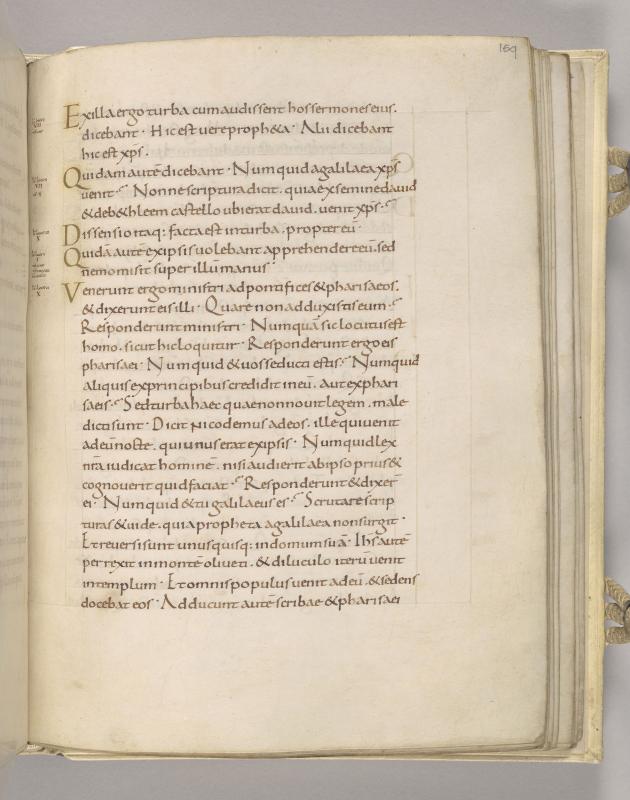 159
Exilla ergo turba cum audissent hos sermones eius.
dicebant · Hic est vere proph&a · Alii dicebant
hic est xp̄s ·
Quidam autē dicebant · Numquid a galilaea xp̄s
venit · Nonne scriptura dicit. quia ex semine david
& de b&hleem castello ubi erat david. venit xp̄s ·
Dissensio itaq; facta est in turba. propter eū ·
Quidā autē ex ipsis volebant apprehendere eū. sed
nemo misit super illū manus ·
Venerunt ergo ministri ad pontifices & pharisaeos.
& dixerunt eis illi · Quare non adduxistis eum ·
Responderunt ministri · Numquā sic locutus est
homo. sicut hic loquitur · Responderunt ergo eis
pharisaei · Numquid & vos seducti estis · Numquid
aliquis ex principibus credidit in eū. aut ex phari
saeis · Sed turba haec quae non novit legem. male
dicti sunt · Dicit nicodemus ad eos. ille qui venit
ad eū nocte. qui unus erat ex ipsis · Numquid lex
nr̄a iudicat hominē. nisi audierit ab ipso prius &
cognoverit quid faciat · Responderunt & dixer̄
ei · Numquid & tu galilaeus es · Scrutare scrip
turas & vide. quia propheta a galilaea non surgit ·
Et reversi sunt unusquisq; in domum suā · Ihs autē
perrexit in montē oliveti. & diluculo iterū venit
in templum · Et omnis populus venit ad eū. & sedens
docebat eos · Adducunt autē scribae & pharisaei